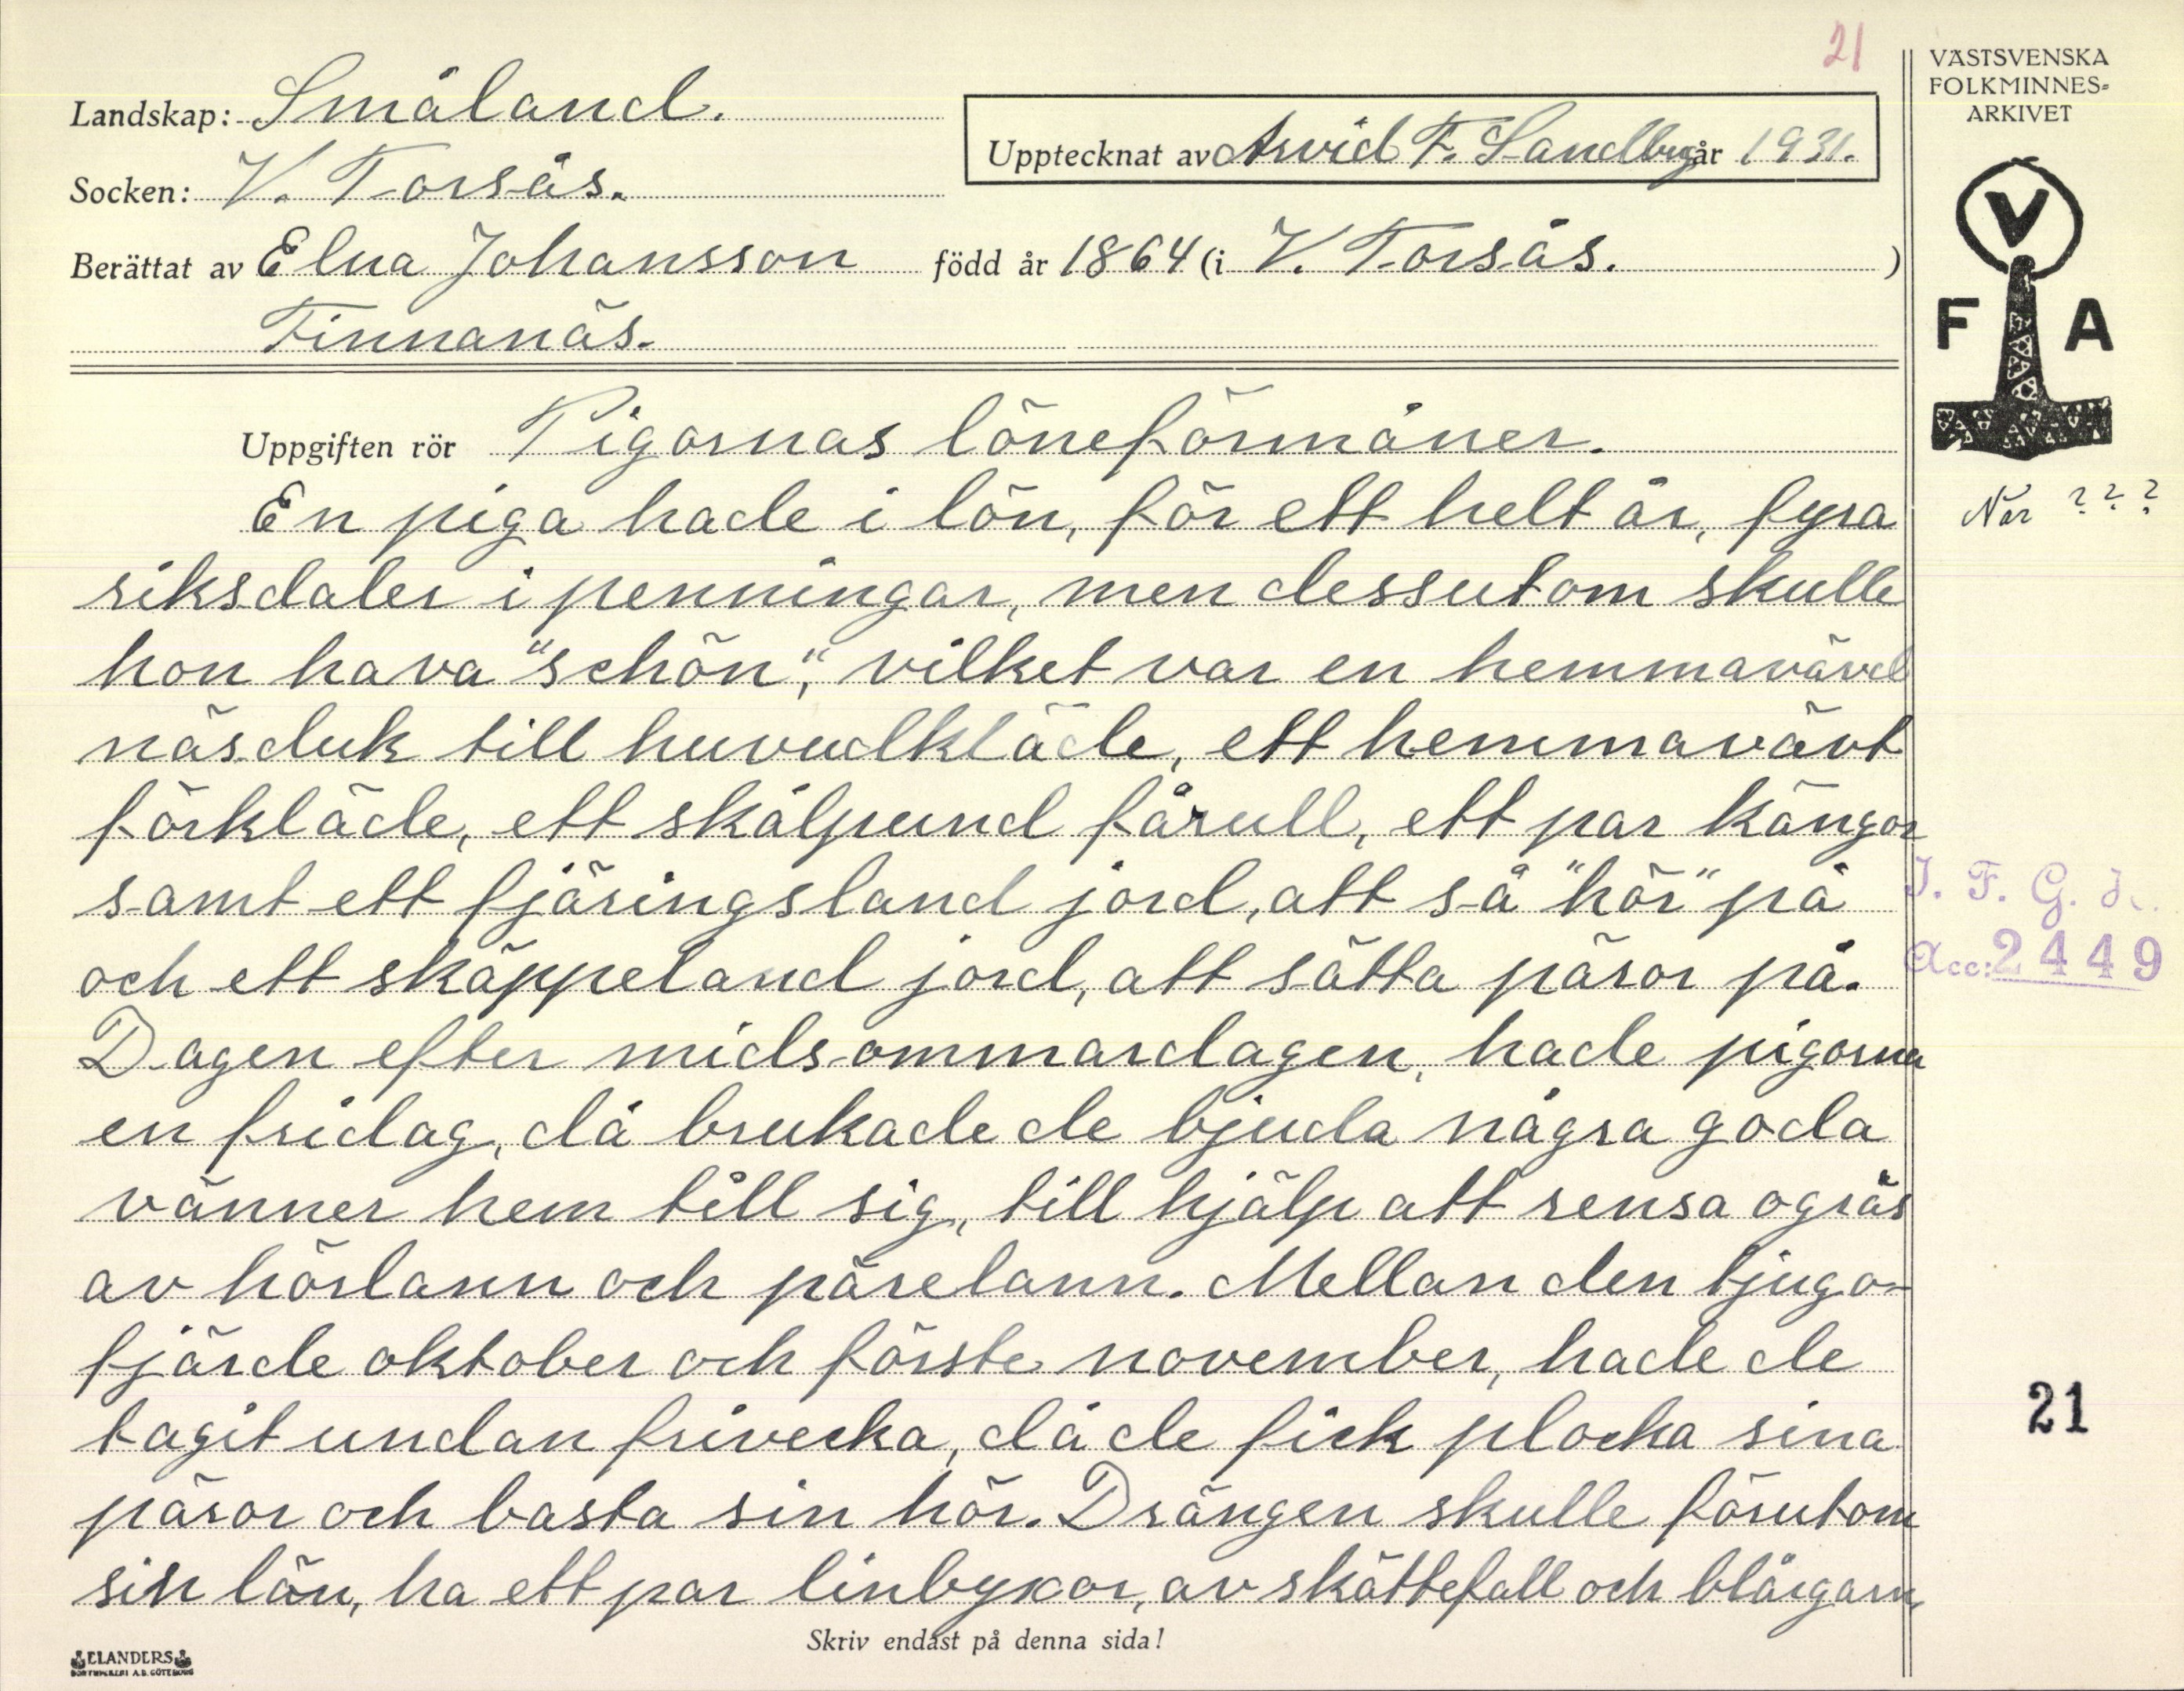 21
VÄSTSVENSKA
FOLKMINNES-
ARKIVET
Landskap: Småland.
Upptecknat av Arvid F. Sandberg år 1931.
Socken: V. Torsås.
Berättat av Elna Johansson född år 1864 (i V. Torsås. )
Finnanäs.
V
F A
Uppgiften rör Pigornas löneförmåner.
När ? ? ?
En piga hade i lön, för ett helt år, fyra
riksdaler i penningar, men dessutom skulle
hon hava "schön", vilket var en hemmavävd
näsduk till huvudkläde, ett hemmavävt
förkläde, ett skålpund fårull, ett par kängor
samt ett fjäringsland jord, att så "hör" på
och ett skäppeland jord, att sätta päror på.
I. F. G. s.
Acc: 2449
Dagen efter midsommardagen, hade pigorna
en fridag, då brukade de bjuda några goda
vänner hem till sig, till hjälp att rensa ogräs
av hörlann och pärelann. Mellan den tjugo-
fjärde oktober och förste november, hade de
tagit undan frivecka, då de fick plocka sina
21
päror och basta sin hör. Drängen skulle förutom
sin lön, ha ett par linbyxor, av skättefall och blårgarn,
Skriv endast på denna sida!
ELANDERS
BOKTRYCKERI A.B. GÖTEBORG